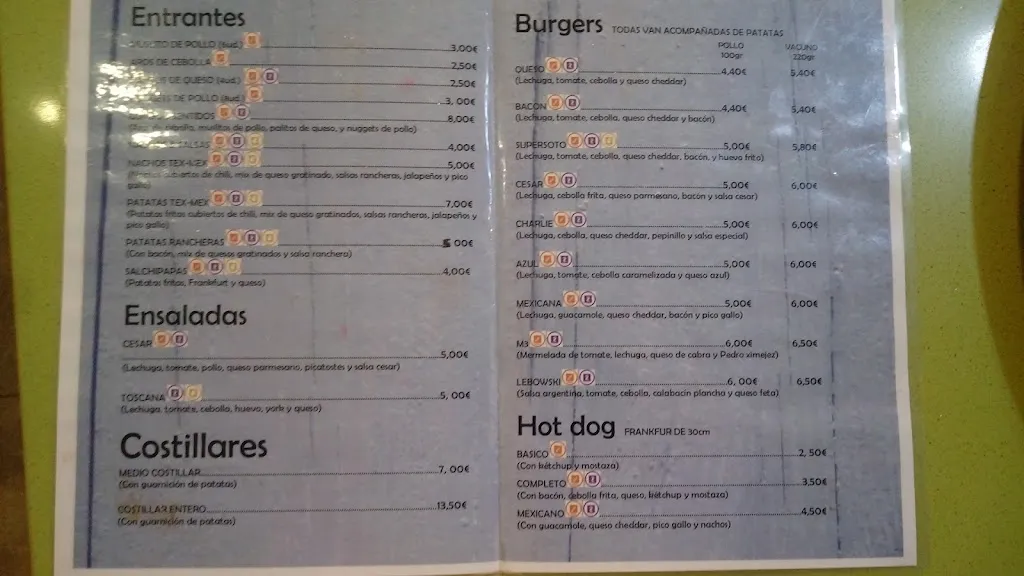 Entrantes
DE POLLO (6ud.) 3,00€
AROS DE CEBOLLA 2,50€
DE QUESO (6ud.) 2,50€
DE POLLO (6ud.) 3,00€
8,00€
muslitos de pollo, palitos de queso, y nuggets de pollo)
SALSAS 4,00€
NACHOS TEX-MEX 5,00€
(Nachos cubiertos de chili, mix de queso gratinado, salsas rancheras, jalapeños y pico
gallo)
PATATAS TEX-MEX 7,00€
(Patatas fritas cubiertas de chili, mix de queso gratinados, salsas rancheras, jalapeños y
pico gallo)
PATATAS RANCHERAS 5 00€
(Con bacón, mix de quesos gratinados y salsa ranchera)
SALCHIPAPAS 4,00€
(Patatas fritas, Frankfurt y queso)
Ensaladas
CESAR 5,00€
(Lechuga, tomate, pollo, queso parmesano, picatostes y salsa cesar)
TOSCANA 5, 00€
(Lechuga, tomate, cebolla, huevo, york y queso)
Costillares
MEDIO COSTILLAR 7, 00€
(Con guarnición de patatas)
COSTILLAR ENTERO 13,50€
(Con guarnición de patatas)
Burgers TODAS VAN ACOMPAÑADAS DE PATATAS
POLLO VACUNO
100gr 220gr
QUESO 4,40€ 5,40€
(Lechuga, tomate, cebolla y queso cheddar)
BACON 4,40€ 5,40€
(Lechuga, tomate, cebolla, queso cheddar y bacón)
SUPERSOTO 5,00€ 5,80€
(Lechuga, tomate, cebolla, queso cheddar, bacón, y huevo frito)
CESAR 5,00€ 6,00€
(Lechuga, cebolla frita, queso parmesano, bacón y salsa cesar)
CHARLIE 5,00€ 6,00€
(Lechuga, cebolla, queso cheddar, pepinillo y salsa especial)
AZUL 5,00€ 6,00€
(Lechuga, tomate, cebolla caramelizada y queso azul)
MEXICANA 5,00€ 6,00€
(Lechuga, guacamole, queso cheddar, bacón y pico gallo)
M3 6,00€ 6,50€
(Mermelada de tomate, lechuga, queso de cabra y Pedro ximejez)
LEBOWSKI 6, 00€ 6,50€
(Salsa argentina, tomate, cebolla, calabacin plancha y queso feta)
Hot dog FRANKFUR DE 30cm
BASICO 2, 50€
(Con kétchup y mostaza)
COMPLETO 3,50€
(Con bacón, cebolla frita, queso, kétchup y mostaza)
MEXICANO 4,50€
(Con guacamole, queso cheddar, pico gallo y nachos)